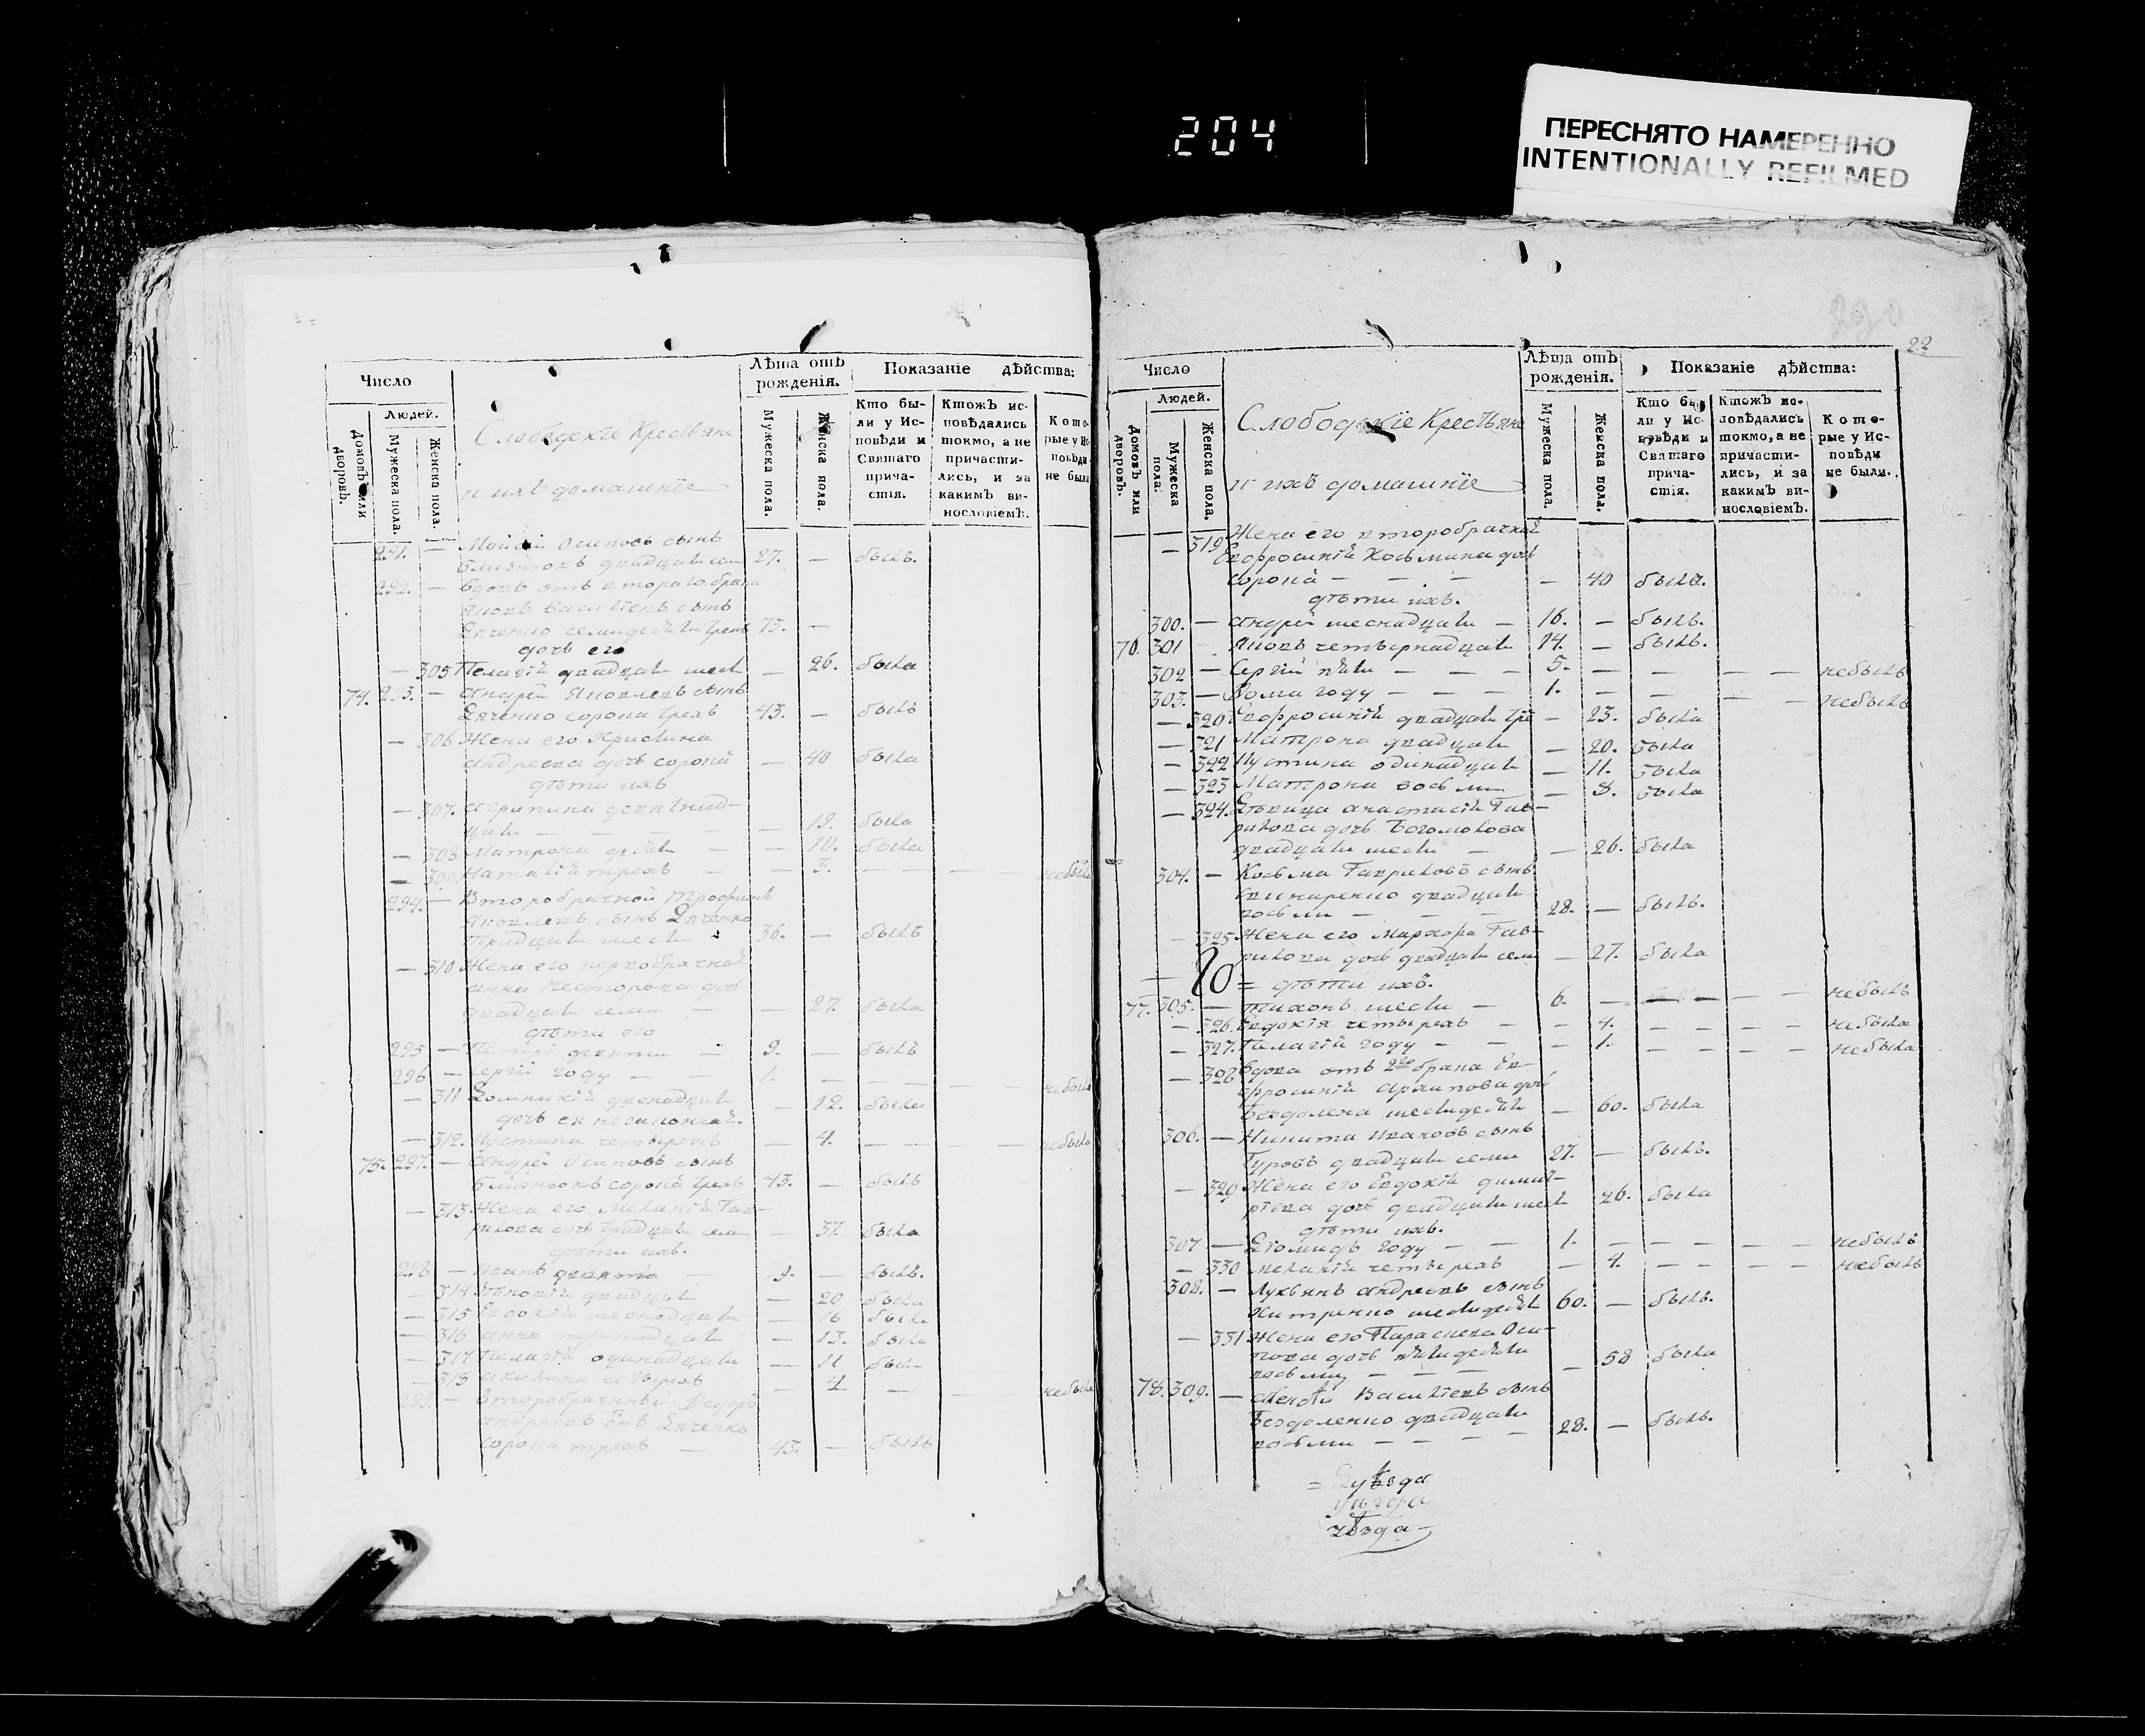 204
ПЕРЕСНЯТО НАМЕРЕННО
INTENTIONALLY REFILMED
Число
Людей.
Домовъ или дворовъ.
Мужеска пола.
Женска пола.
Слободскіе Крестьяне
и ихъ домашніе
Лѣта отъ рожденія.
Мужеска пола.
Женска пола.
Показаніе дѣйства:
Кто были у Исповѣди и Святаго причастія.
Ктожъ исповѣдались токмо, а не причастились, и за какимъ винословіемъ.
Которые у Исповѣди не были
291. — Осиповъ сынъ
Близнюкъ двадцати семи 27. — былъ.
292. — вдовъ отъ втораго брака
Яковъ Василіевъ сынъ
Дяченко семидесяти трехъ 73. —
дочь его
— 305 Пелагія двадцати шести — 26. была
74. 293. — Андрей Яковлевъ сынъ
Дяченко сорока трехъ 43. — былъ
— 306 Жена его Христина
Андреева дочь сорока — 40 была
дѣти ихъ
— 307. Агрипина девятнад-
цати — — 19. была
— 308 Матрона десяти — — 10. была
— 309. Наталія трехъ — — 3. — — — небыла
294. — Второбрачной Трофимъ
Яковлевъ сынъ Дяченко
тридцати шести 36. — былъ
— 310 Жена его первобрачная
Анна Несторова дочь
двадцати семи — — 27. была
дѣти его
295 — Петръ девяти — 9. — былъ
296 — Сергій году — 1. — — — небылъ
— 311 Домникія двенадцати — 12. была
дочь ея незаконная.
— 312. Иустина четырехъ — 4. — — — небыла
75. 297. — Андрей Осиповъ сынъ
Близнюкъ сорока трехъ 43. — былъ
— 313. Жена его Меланія Гав-
рилова дочь тридцати семи — 37. была
дѣти ихъ.
298 — Иванъ девяти 9. — былъ.
— 314 двадцати — 20 была
— 315 Евдокія шеснадцати — 16 была
— 316 Анна тринадцати — 13. была
— 317 Пелагія одинадцати — 11 была
— 318 Акилина четырехъ — 4 — — — небыла
299. — Второбрачный Федоръ
Андреевъ Дяченко
сорока трехъ — 43. — былъ
22
Число
Людей.
Домовъ или дворовъ.
Мужеска пола.
Женска пола.
Слободскіе Крестьяне
и ихъ домашніе
Лѣта отъ рожденія.
Мужеска пола.
Женска пола.
Показаніе дѣйства:
Кто были у Исповѣди и Святаго причастія.
Ктожъ исповѣдались токмо, а не причастились, и за какимъ винословіемъ.
Которые у Исповѣди не были.
— 319 Жена его второбрачная
Евфросинія Косьмина дочь
сорока — — — — 40 была.
дѣти ихъ.
300. — Андрей шеснадцати — 16. — былъ.
76. 301 Яковъ четырнадцати 14. — былъ.
302 — Сергій пяти — — — 5. — — — — небылъ
303. — Фома году — — — 1. — — — — небылъ
— 320 Евфросинія двадцати три — 23. была
— 321 Матрона двадцати — 20. была
— 322 Иустина одинадцати — 11. была
— 323 Матрона восьми — 8. была
— 324. Девица Анастасія Гав-
рилова дочь Богомолова
двадцати шести — — 26. была
304. — Косьма Гавриловъ сынъ
двадцати
восьми — — — 28. — былъ.
— 325 Жена его Марфора Гав-
рилова дочь двадцати семи — 27. была
= дѣти ихъ.
77. 305. — Тихонъ шести — 6. — — — — небылъ
— 326. Евдокія четырехъ — — 4. — — — — небыла
— 327. Пелагія году — — — 1. — — — — небыла
— 328 Вдова отъ 2го брака Ев-
фросинія Архипова дочь
шестидесяти — 60. была
306. — Никита Ивановъ сынъ
Гуровъ двадцати семи 27. — былъ.
— 329 Жена его Евдокія Димит-
ріева дочь двадцати шести 26. была
дѣти ихъ.
307 — Діомидъ году — — 1. — — — — — небылъ
— 330 Меланія четырехъ — 4. — — — — небылъ
308. — Лукьянъ Андреевъ сынъ
Хитренко шестидесяти 60. — былъ.
— 331 Жена его Параскева Оси-
пова дочь пятидесяти
восьми — — — — 58 была
78. 309. — Василіевъ сынъ
Бездоленко двадцати
восьми — — — — 28. — былъ.